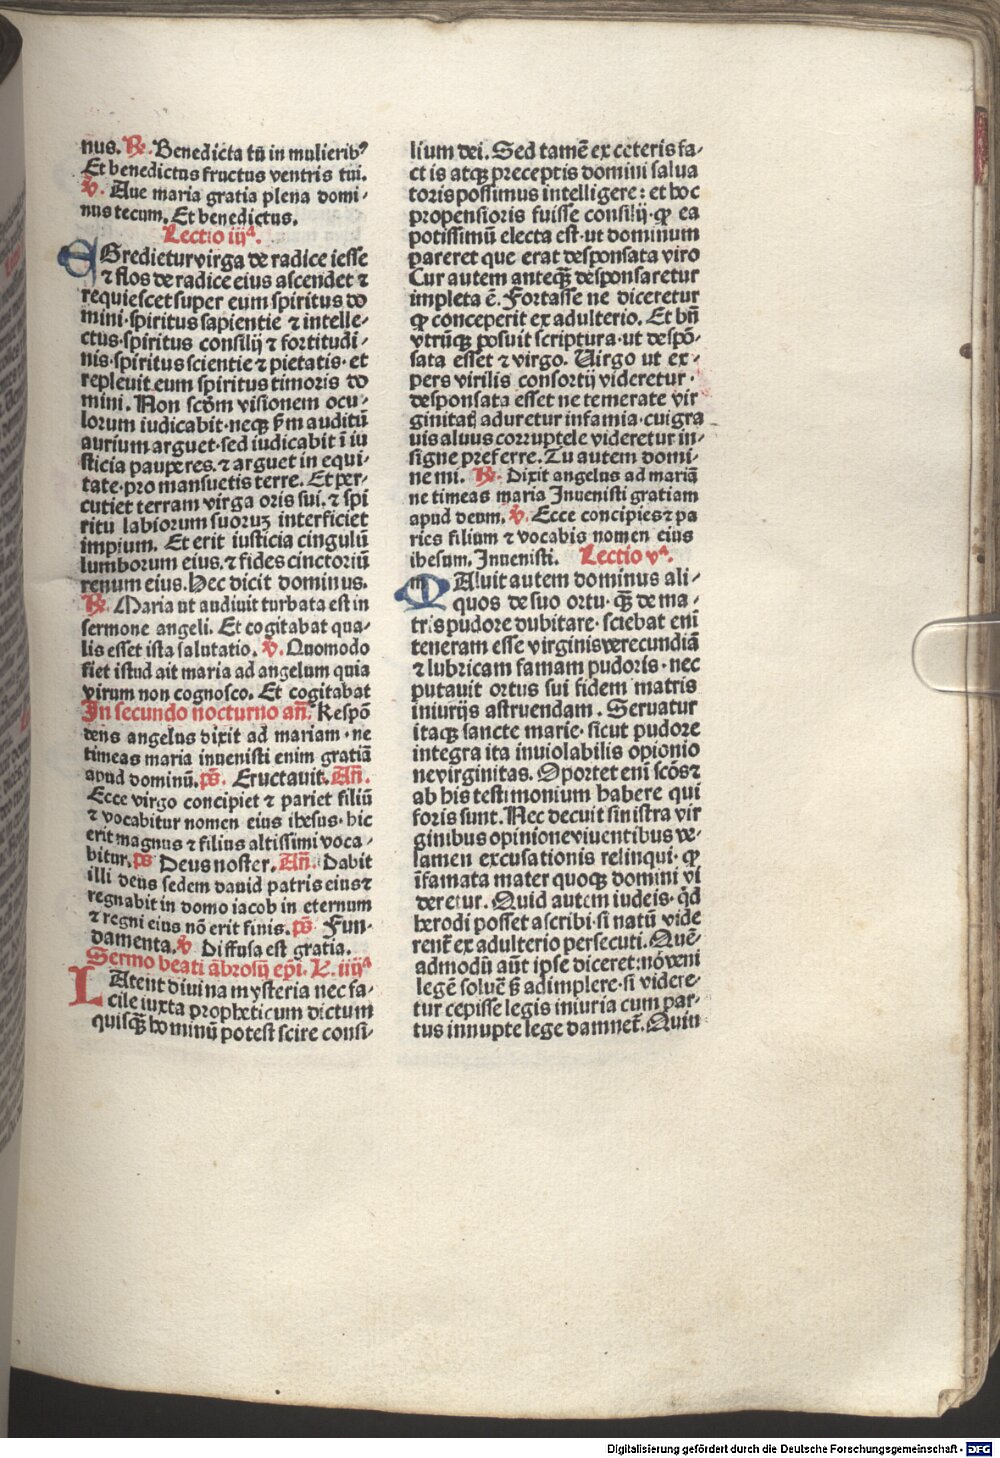 nus. ℟. Benedicta tū in mulierib⁹
Et benedictus fructus ventris tui.
℣. Aue maria gratia plena domi-
nus tecum. Et benedictus.
Lectio iijᵃ.
EGredietur virga de radice iesse
⁊ flos de radice eius ascendet ⁊
requiescet super eum spiritus do
mini·spiritus sapientie ⁊ intelle-
ctus·spiritus consilij ⁊ fortitudi-
nis·spiritus scientie ⁊ pietatis· et
repleuit eum spiritus timoris do
mini. Non scd̄m visionem ocu-
lorum iudicabit·neqꝫ p̄m auditū
aurium arguet·sed iudicabit ī iu
sticia pauperes. ⁊ arguet in equi-
tate·pro mansuetis terre. Et per-
cutiet terram virga oris sui. ⁊ spi
ritu labiorum suoruꝫ interficiet
impium. Et erit iusticia cingulū
lumborum eius. ⁊ fides cinctoriū
renum eius. Hec dicit dominus.
℟. Maria ut audiuit turbata est in
sermone angeli. Et cogitabat qua-
lis esset ista salutatio. ℣. Quomodo
fiet istud ait maria ad angelum quia
virum non cognosco. Et cogitabat
In secundo nocturno an̄. Respō
dens angelus dixit ad mariam · ne
timeas maria inuenisti enim gratiā
apud dominū. ps̄. Eructauit. An̄.
Ecce virgo concipiet ⁊ pariet filiū
⁊ vocabitur nomen eius ihesus· hic
erit magnus ⁊ filius altissimi voca-
bitur. ps̄ Deus noster. An̄. Dabit
illi deus sedem dauid patris eius ⁊
regnabit in domo iacob in eternum
⁊ regni eius nō erit finis. ps̄ Fun-
damenta. ℣ Diffusa est gratia.
Sermo beati ābrosij ep̄i. L. iiijᵃ
LAtent diuina mysteria nec fa-
cile iuxta propheticum dictum
quisq̄ꝫ hominū potest scire consi-
lium dei. Sed tamē ex ceteris fa-
ctis atqꝫ preceptis domini salua
toris possimus intelligere: et hoc
propensioris fuisse consilij·ꝙ ea
potissimū electa est·ut dominum
pareret que erat desponsata viro
Cur autem anteq̄ꝫ desponsaretur
impleta ē. Fortasse ne diceretur
ꝙ conceperit ex adulterio. Et bn̄
vtrūqꝫ posuit scriptura·ut despō-
sata esset ⁊ virgo. Uirgo ut ex-
pers virilis consortij videretur·
desponsata esset ne temerate vir
ginitatis aduretur infamia·cui gra
uis aluus corruptele videretur in-
signe preferre. Tu autem domi-
ne mi. ℟. Dixit angelus ad mariā
ne timeas maria Inuenisti gratiam
apud deum. ℣. Ecce concipies ⁊ pa
ries filium ⁊ vocabis nomen eius
ihesum. Inuenisti. Lectio vᵃ.
MAluit autem dominus ali-
quos de suo ortu· q̄ꝫ de ma-
tris pudore dubitare· sciebat eni
teneram esse virginis verecundiā
⁊ lubricam famam pudoris· nec
putauit ortus sui fidem matris
iniurijs astruendam. Seruatur
itaqꝫ sancte marie· sicut pudore
integra ita inuiolabilis opionio
ne virginitas. Oportet eni scōs ⁊
ab his testimonium habere qui
foris sunt. Nec decuit sinistra vir
ginibus opinione viuentibus ve-
lamen excusationis relinqui· ꝙ
īfamata mater quoqꝫ domini vi
deretur. Quid autem iudeis· q̄d
herodi posset ascribi·si natū vide
rent̄ ex adulterio persecuti. Quē-
admodū aūt ipse diceret: nō veni
legē soluē ꝫ adimplere·si videre-
tur cepisse legis iniuria cum par-
tus innupte lege damnet̄. Quin
Digitalisierung gefördert durch die Deutsche Forschungsgemeinschaft · DFG